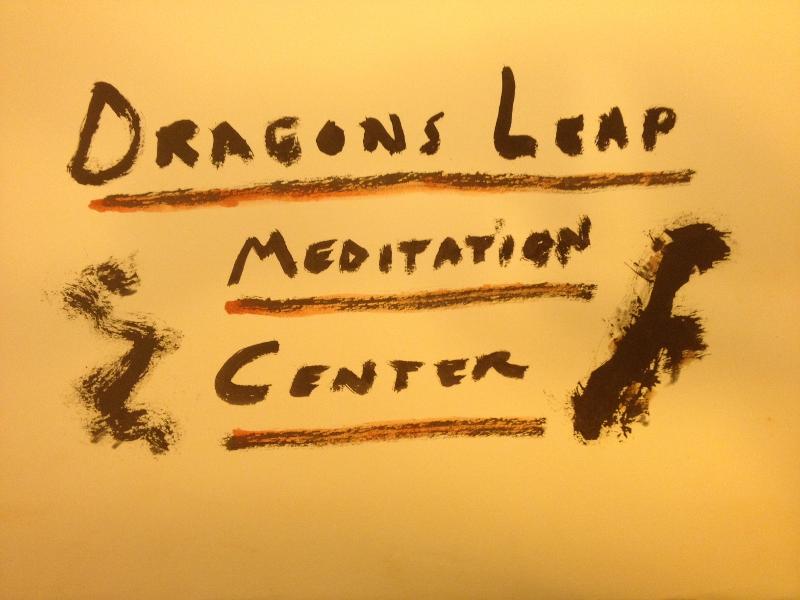 Dragons Leap
Meditation
Center